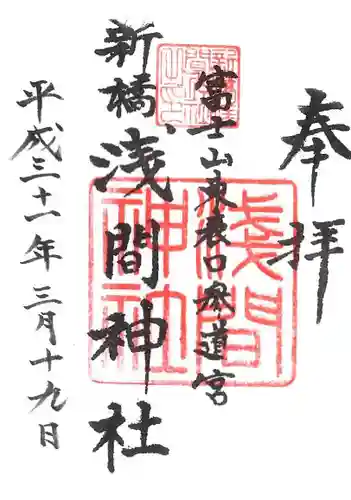 奉拝
富士山東表口参道宮
新橋浅間神社
平成三十一年三月十九日
浅間神社